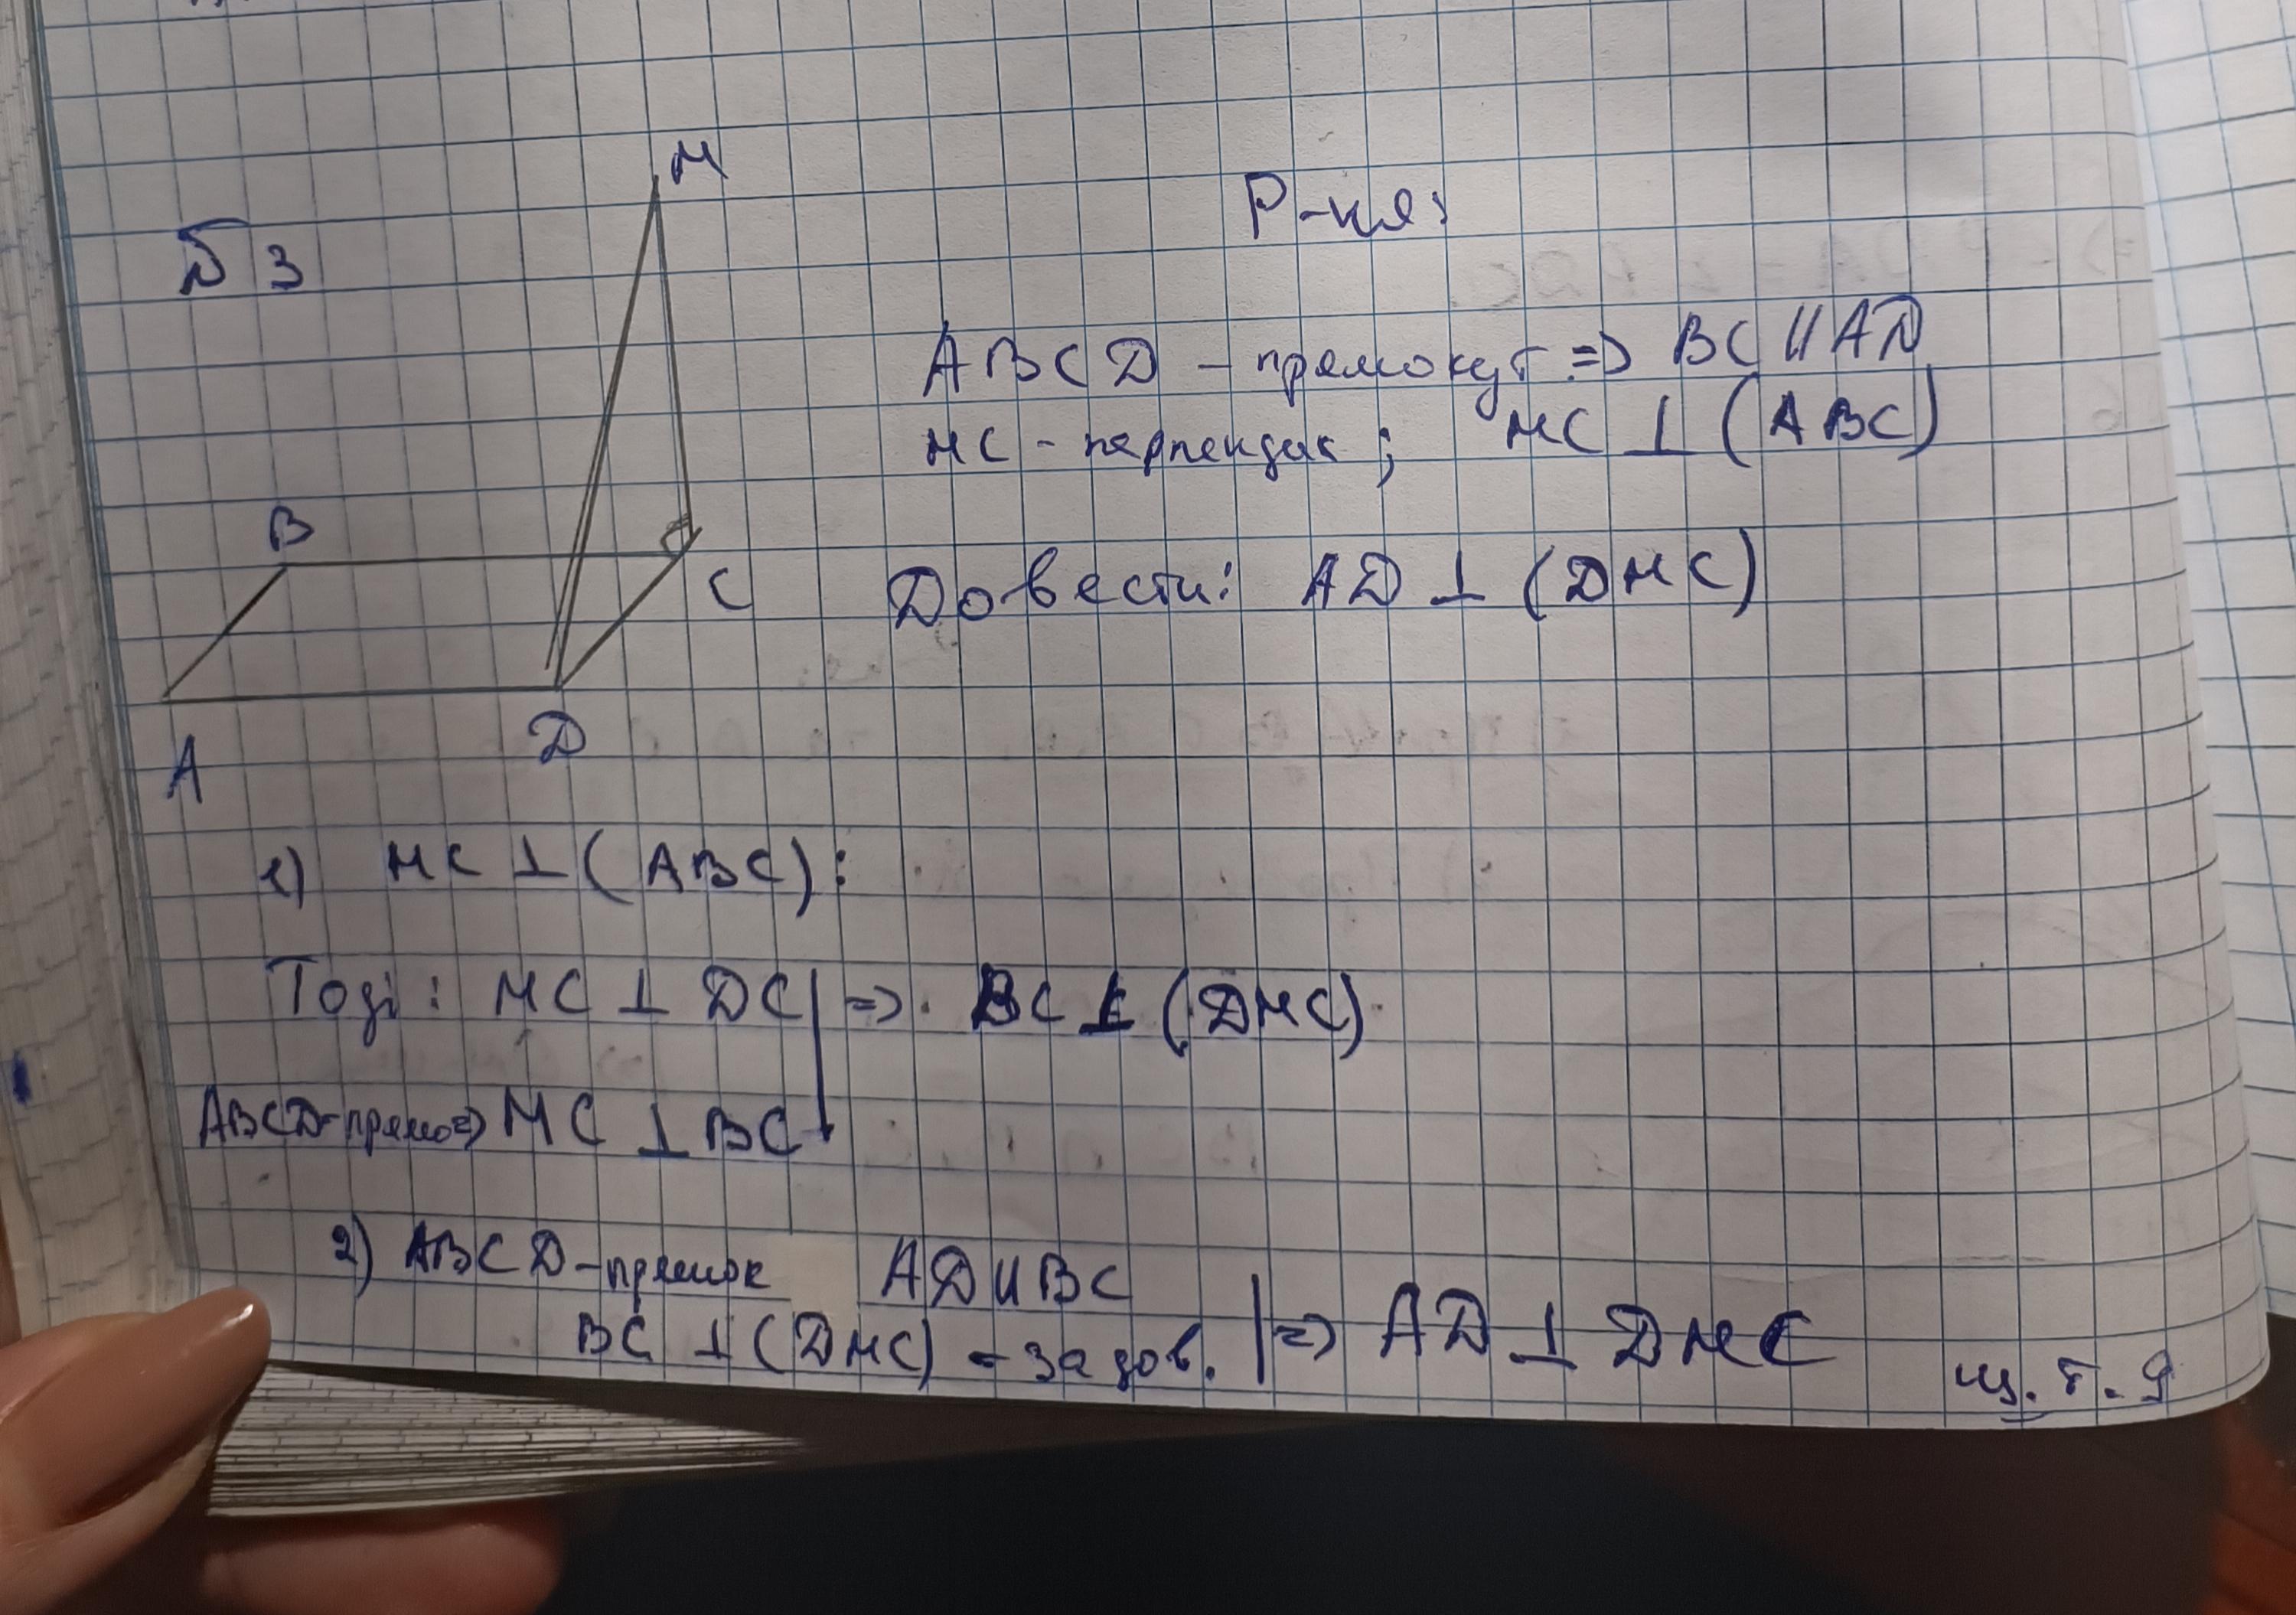 М
Б 3
Р-ня:
ABCD - прямокут => BC || AD
MC - перпендик ; MC ⊥ (ABC)
B
C
Довести: AD ⊥ (DMC)
D
A
1) MC ⊥ (ABC):
Тоді: MC ⊥ DC | => BC ⊥ (DMC)
ABCD-прямо=> MC ⊥ BC
2) ABCD-прямок AD || BC
BC ⊥ (DMC) - за дов. | => AD ⊥ DMC
щ. т. д